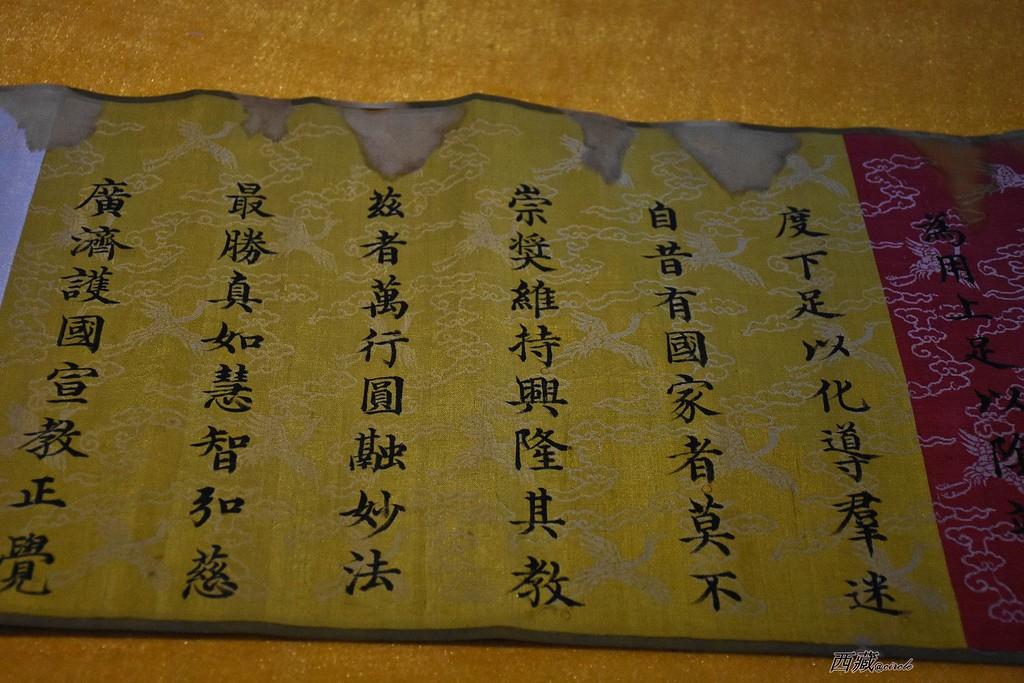 為用上足以陰
度下足以化導羣迷
自昔有國家者莫不
崇獎維持興隆其教
茲者萬行圓融妙法
最勝真如慧智弘慈
廣濟護國宣教正覺
西藏@